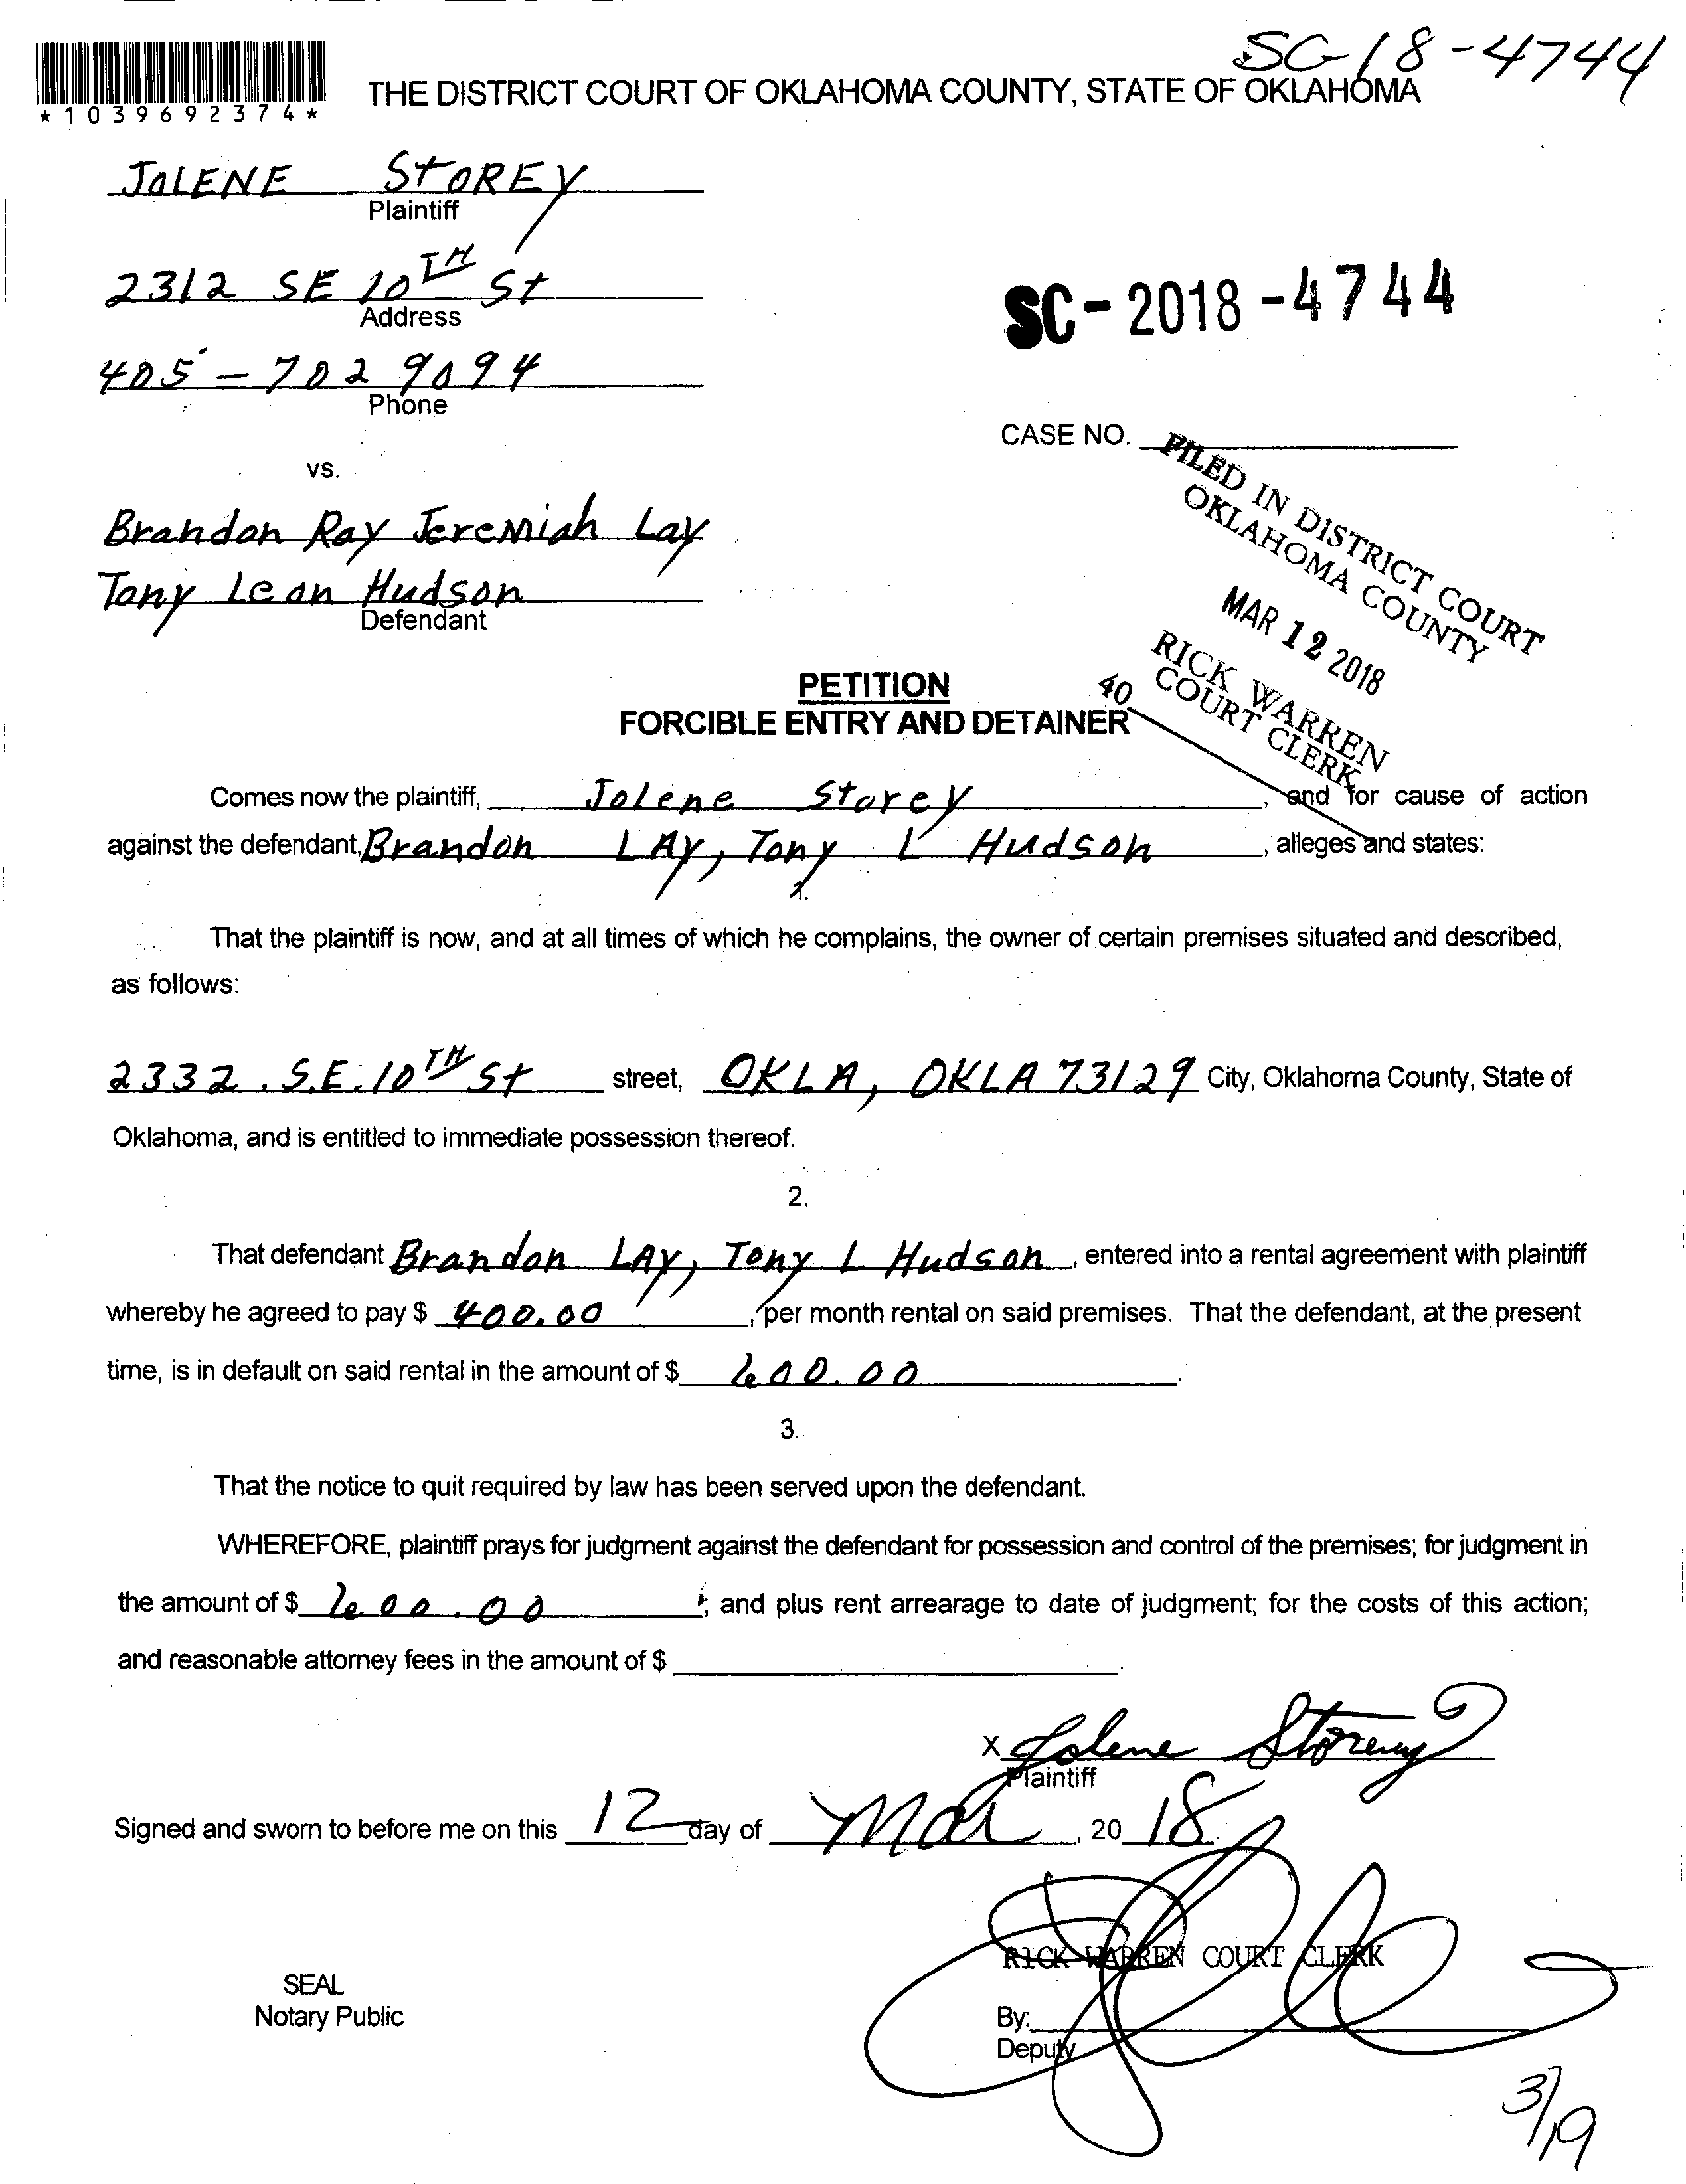 SC-18-4744
*1039692374*
THE DISTRICT COURT OF OKLAHOMA COUNTY, STATE OF OKLAHOMA
JOLENE STOREY
Plaintiff
2312 SE 10TH St
Address
405-702 9094
Phone
SC-2018-4744
CASE NO.
vs.
FILED IN DISTRICT COURT
OKLAHOMA COUNTY
MAR 12 2018
RICK WARREN
COURT CLERK
40
Brandon Ray Jeremiah Lay
Tony Leon Hudson
Defendant
PETITION
FORCIBLE ENTRY AND DETAINER
Comes now the plaintiff, Jolene Storey, and for cause of action
against the defendant, Brandon LAy, Tony L Hudson, alleges and states:
1.
That the plaintiff is now, and at all times of which he complains, the owner of certain premises situated and described,
as follows:
2332 . S.E. 10TH St street, OKLA, OKLA 73129 City, Oklahoma County, State of
Oklahoma, and is entitled to immediate possession thereof.
2.
That defendant Brandon LAy, Tony L Hudson, entered into a rental agreement with plaintiff
whereby he agreed to pay $ 400.00, per month rental on said premises. That the defendant, at the present
time, is in default on said rental in the amount of $ 600.00.
3.
That the notice to quit required by law has been served upon the defendant.
WHEREFORE, plaintiff prays for judgment against the defendant for possession and control of the premises; for judgment in
the amount of $ 600.00; and plus rent arrearage to date of judgment; for the costs of this action;
and reasonable attorney fees in the amount of $
X Jolene Storey
Plaintiff
Signed and sworn to before me on this 12 day of Mar, 20 18
RICK WARREN COURT CLERK
SEAL
Notary Public
By:
Deputy
3/19